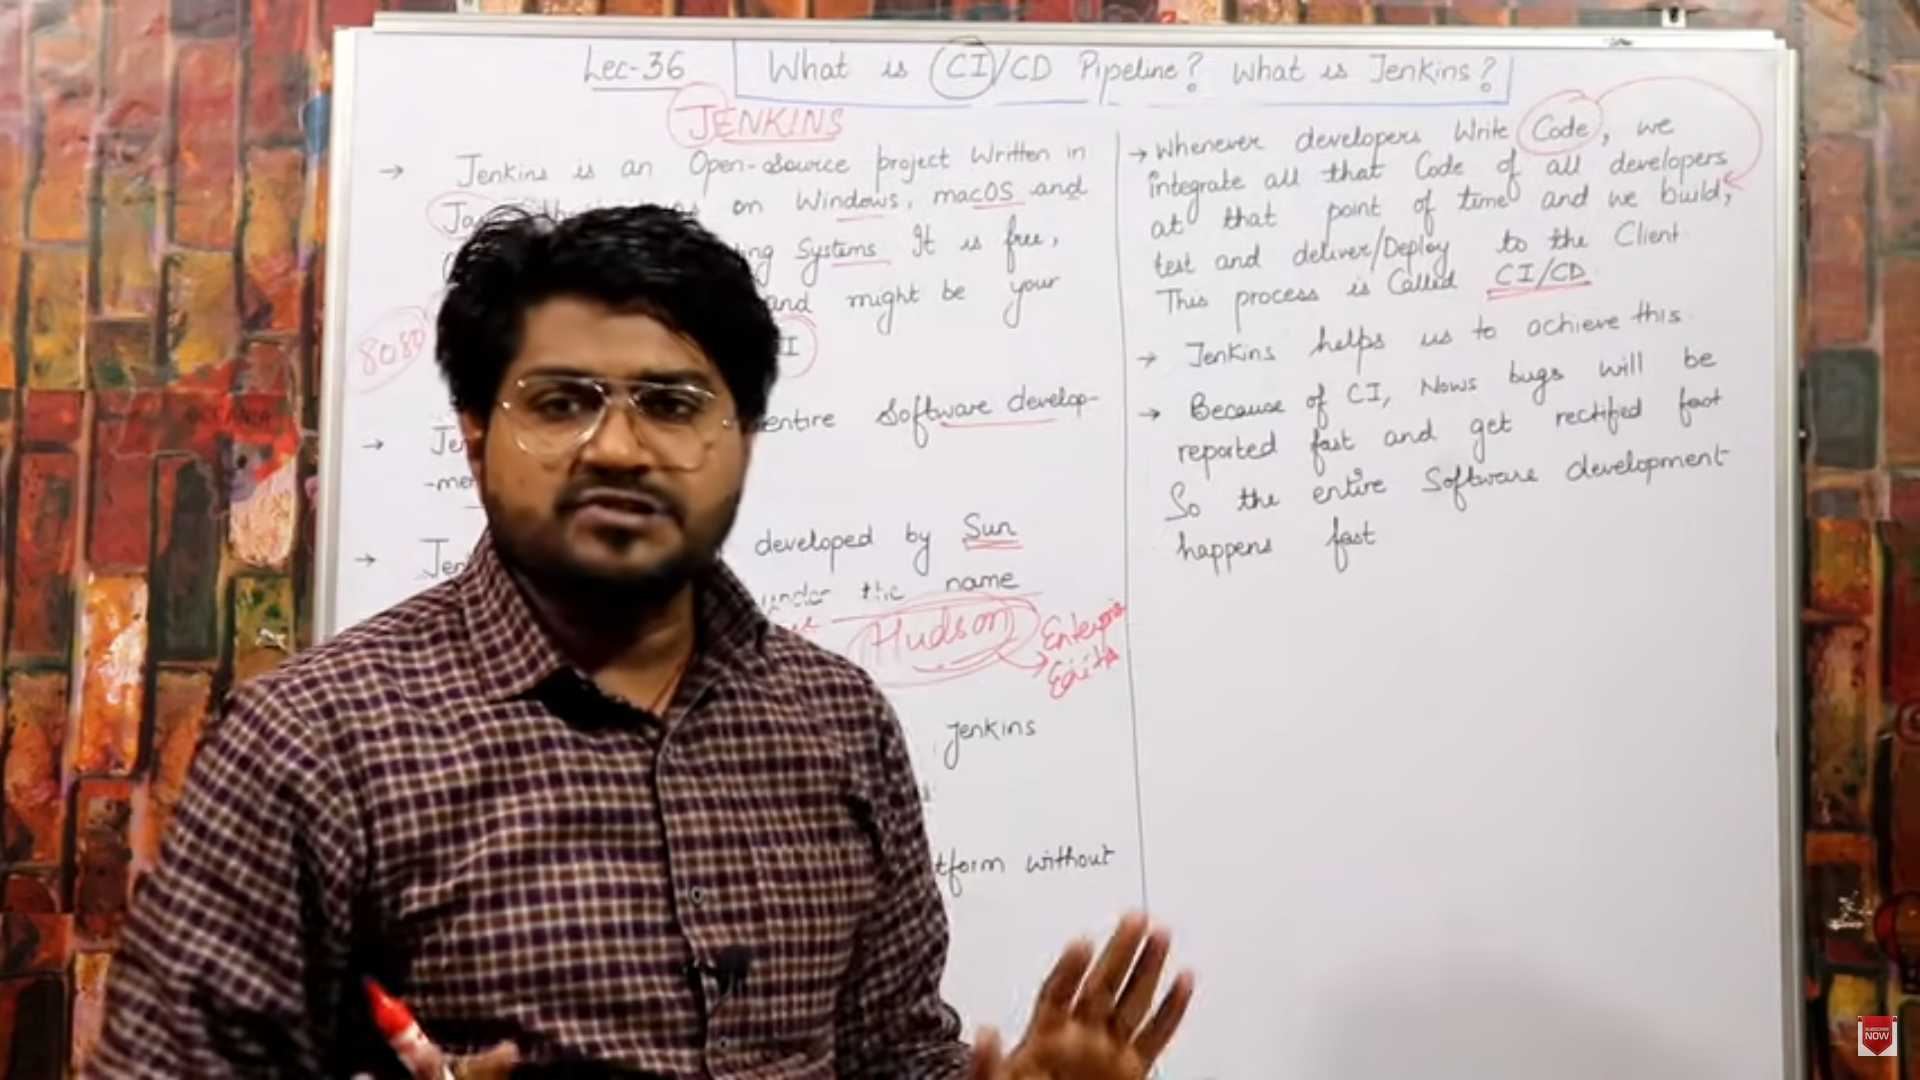 Lec-36 What is CI/CD Pipeline? What is Jenkins?
JENKINS
→ Jenkins is an Open-source project Written in
on Windows, macOS and
Systems It is free,
and might be your
8080
I
entire Software develop-
developed by Sun
under the name
Hudson
Jenkins
without
→ Whenever developers Write Code, we
integrate all that Code of all developers
at that point of time and we build,
test and deliver/Deploy to the Client.
This process is Called CI/CD.
→ Jenkins helps us to achieve this.
→ Because of CI, Nows bugs will be
reported fast and get rectified fast
So the entire Software development
happens fast
SUBSCRIBE
NOW